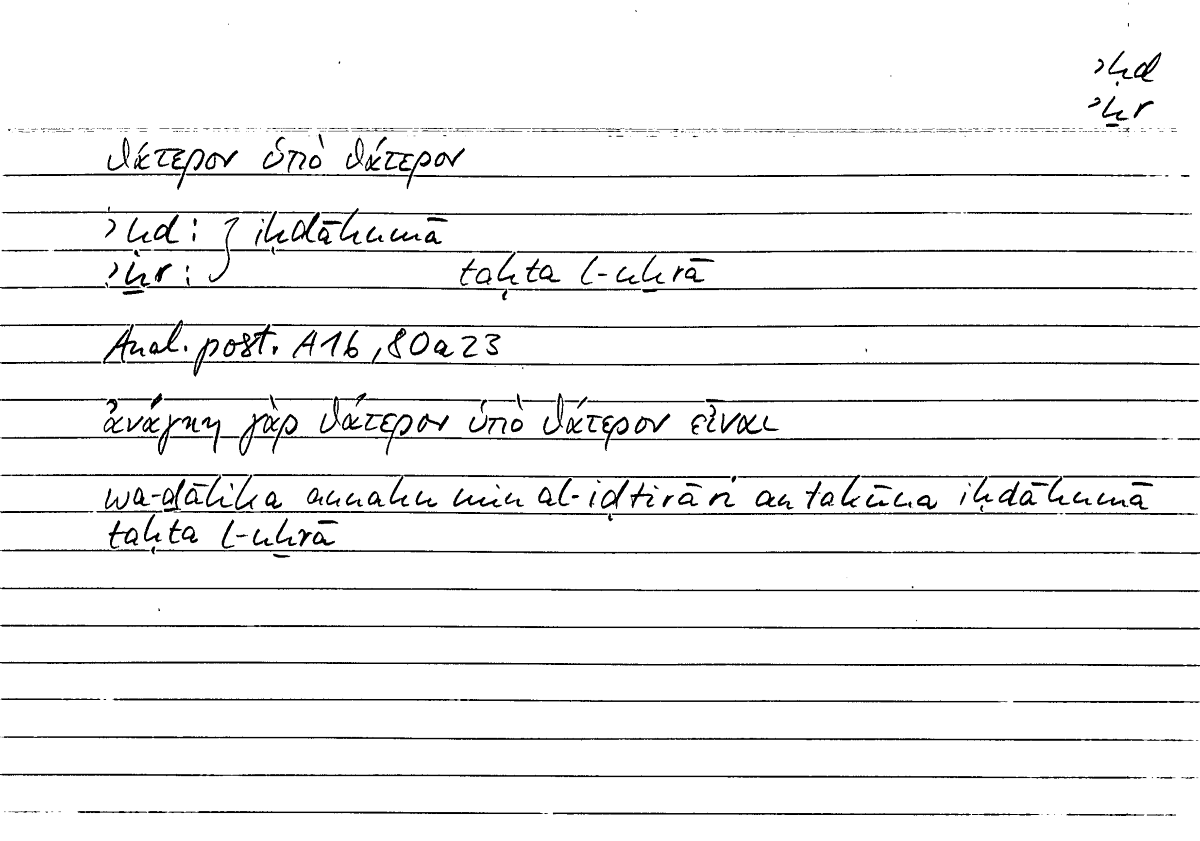 ʾḥd
ʾḫr
θάτερον ὑπὸ θάτερον
ʾḥd : } iḥdāhumā
ʾḫr : taḥta l-uḫrā
Anal. post. A16, 80a23
ἀνάγκη γὰρ θάτερον ὑπὸ θάτερον εἶναι
wa-ḏālika annahu min al-iḍtirāri an takūna iḥdāhumā
taḥta l-uḫrā